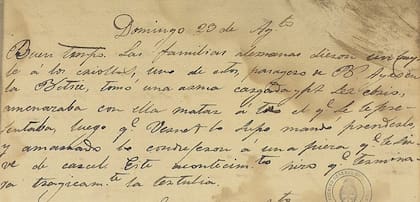 Domingo 23 de Ag.to
Buen tiempo. Las familias alemanas dieron un bay
le á los criollos, uno de estos, pasagero de B. Ay.s en
la Betsie, tomó una arma cargada,
amenazaba con ella matar a to el q.e se le pre
sentaba, luego q.e Vernet lo supo mandó prenderlo,
y amarrado lo condujeron á una pieza q.e le sir
ve de carcel. Este acontecim.to hizo q.e termina
ra tragicam.te la tertulia.